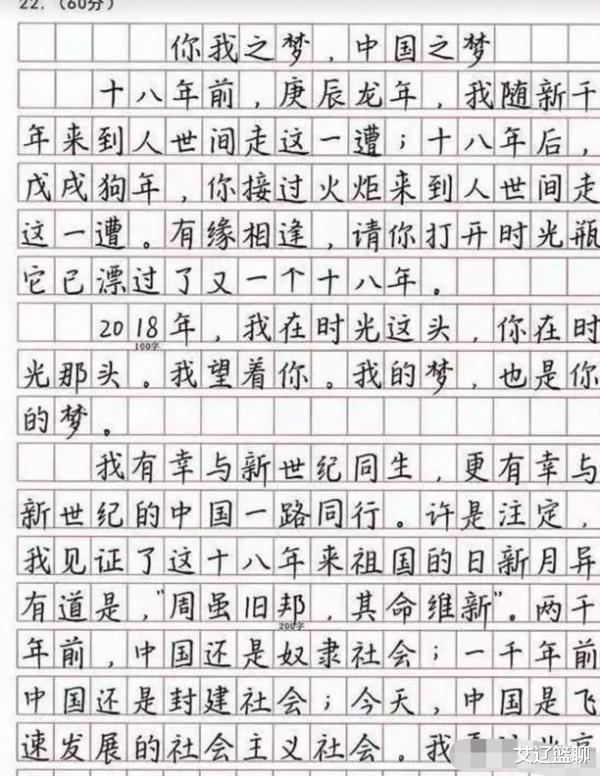 22.（60分）
你我之梦，中国之梦
十八年前，庚辰龙年，我随新千
年来到人世间走这一遭；十八年后，
戊戌狗年，你接过火炬来到人世间走
这一遭。有缘相逢，请你打开时光瓶
它已漂过了又一个十八年。
2018年，我在时光这头，你在时
100字
光那头。我望着你。我的梦，也是你
的梦。
我有幸与新世纪同生，更有幸与
新世纪的中国一路同行。许是注定，
我见证了这十八年来祖国的日新月异
有道是，“周虽旧邦，其命维新”。两千
200字
年前，中国还是奴隶社会；一千年前
中国还是封建社会；今天，中国是飞
速发展的社会主义社会。我
艾辽篮聊